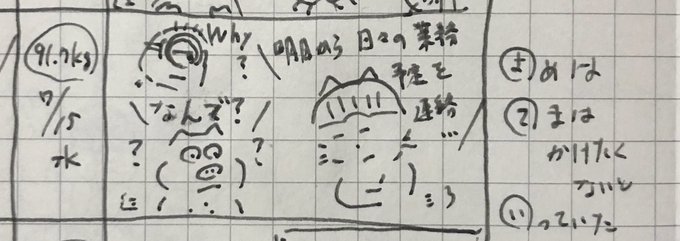 91.7kg
7/15
水
Why
?
なんで?
?
?
日々の業務
予定を
連絡…
よめは
てまは
かけたく
ないと
いっていた